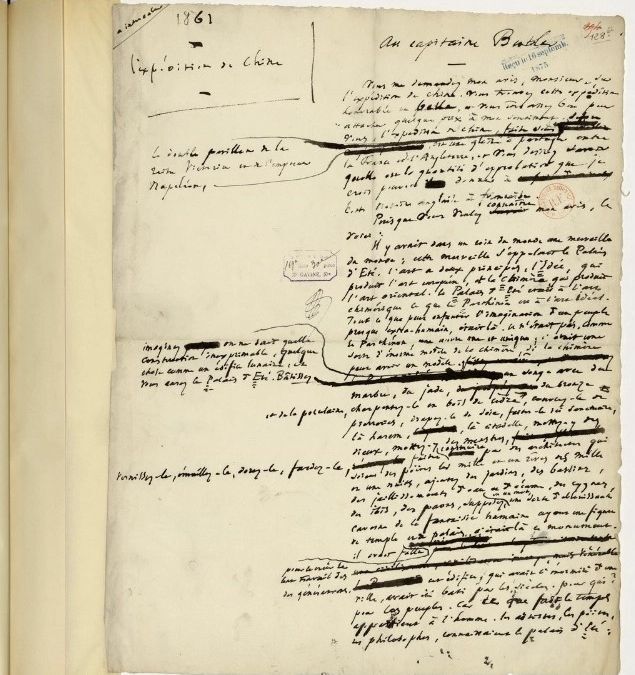 1861
l'expédition de Chine
Au capitaine Butler
Reçu le 16 septemb. 1875
128
Vous me demandez mon avis, monsieur, sur
l'expédition de Chine. Vous trouvez cette expédition
honorable et belle, et vous êtes assez bon pour
attacher quelque prix à mon sentiment; selon
vous, l'expédition de Chine, faite sous
le double pavillon de la
reine Victoria et de l'empereur
Napoléon,
est une gloire à partager entre
la France et l'Angleterre, et vous désirez savoir
quelle est la quantité d'approbation que je
crois pouvoir donner à
cette victoire anglaise et française.
Puisque vous voulez connaître mon avis, le
voici :
Il y avait dans un coin du monde une merveille
du monde; cette merveille s'appelait le Palais
d'Eté. L'art a deux principes, l'Idée, qui
produit l'art européen, et la Chimère qui produit
l'art oriental. Le Palais d'Eté était à l'art
chimérique ce que le Parthénon est à l'art idéal.
Tout ce que peut enfanter l'imagination d'un peuple
presque extra-humain, était là. Ce n'était pas, comme
le Parthénon, une œuvre une et unique; c'était une
sorte d'énorme modèle de la chimère, si la chimère
peut avoir un modèle.
imaginez on ne sait quelle
construction inexprimable, quelque
chose comme un édifice lunaire, et
vous aurez le Palais d'Eté. Bâtissez
un songe avec du
marbre, du jade, du bronze
et de la porcelaine,
charpentez-le en bois de cèdre, couvrez-le de
pierreries, drapez-le de soie, faites-le ici sanctuaire,
là harem, là citadelle, mettez-y des
dieux, mettez-y des monstres,
vernissez-le, émaillez-le, dorez-le, fardez-le,
faites construire par des architectes qui
soient des poètes les mille et un rêves des mille
et une nuits, ajoutez des jardins, des bassins,
des jaillissements d'eau et d'écume, des cygnes,
des ibis, des paons, supposez en un mot une sorte d'éblouissante
caverne de la fantaisie humaine ayant une figure
de temple et de palais, c'était là ce monument.
il avait fallu
pour le créer le
lent travail des
des générations.
cet édifice, qui avait l'énormité d'une
ville, avait été bâti par les siècles, pour qui?
pour les peuples. Car ce que fait le temps
appartient à l'homme. Les artistes, les poètes,
les philosophes, connaissaient le palais d'été;